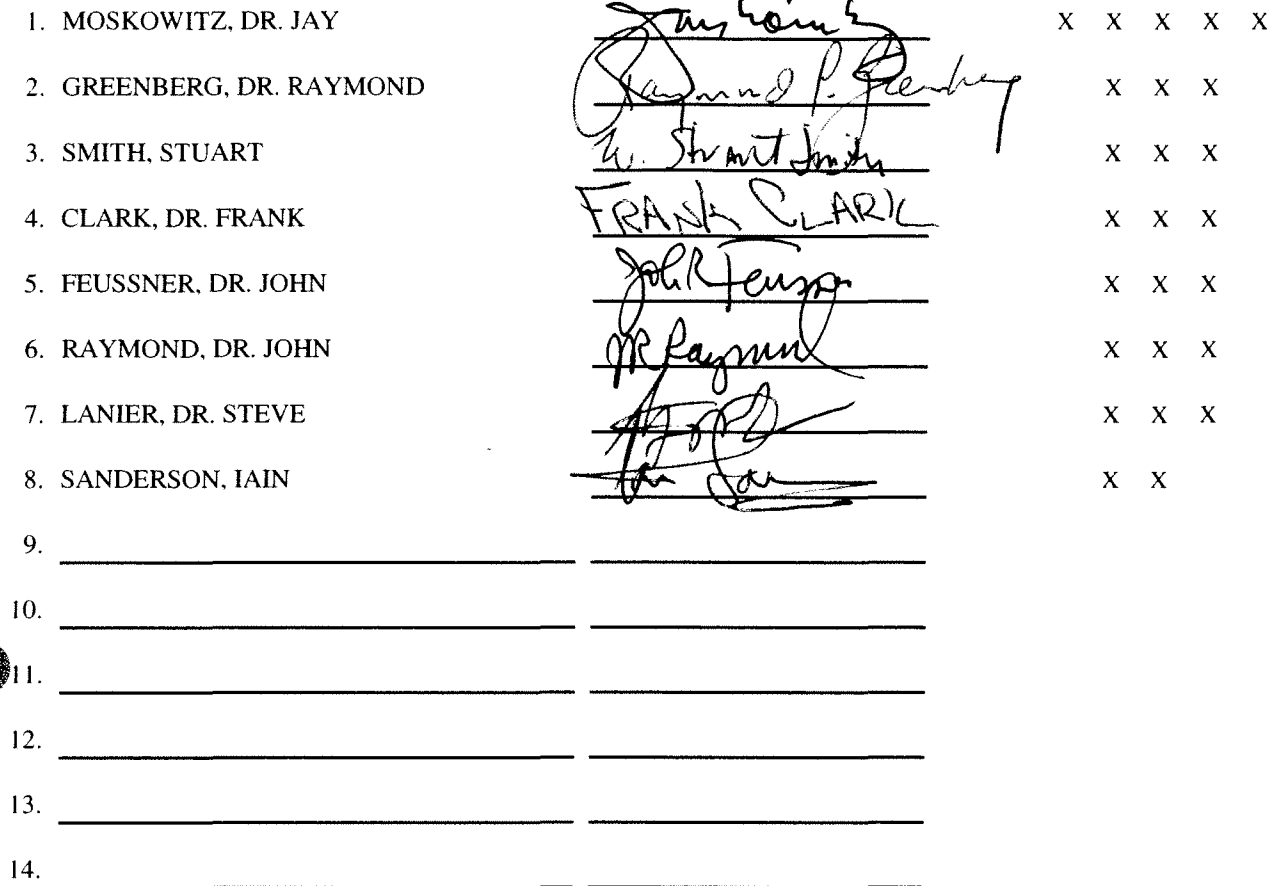 1. MOSKOWITZ, DR. JAY X X X X X
2. GREENBERG, DR. RAYMOND Raymond P. Greenberg X X X
3. SMITH, STUART W. Stuart Smith X X X
4. CLARK, DR. FRANK FRANK CLARK X X X
5. FEUSSNER, DR. JOHN John R Feussner X X X
6. RAYMOND, DR. JOHN JR Raymond X X X
7. LANIER, DR. STEVE X X X
8. SANDERSON, IAIN X X
9.
10.
11.
12.
13.
14.